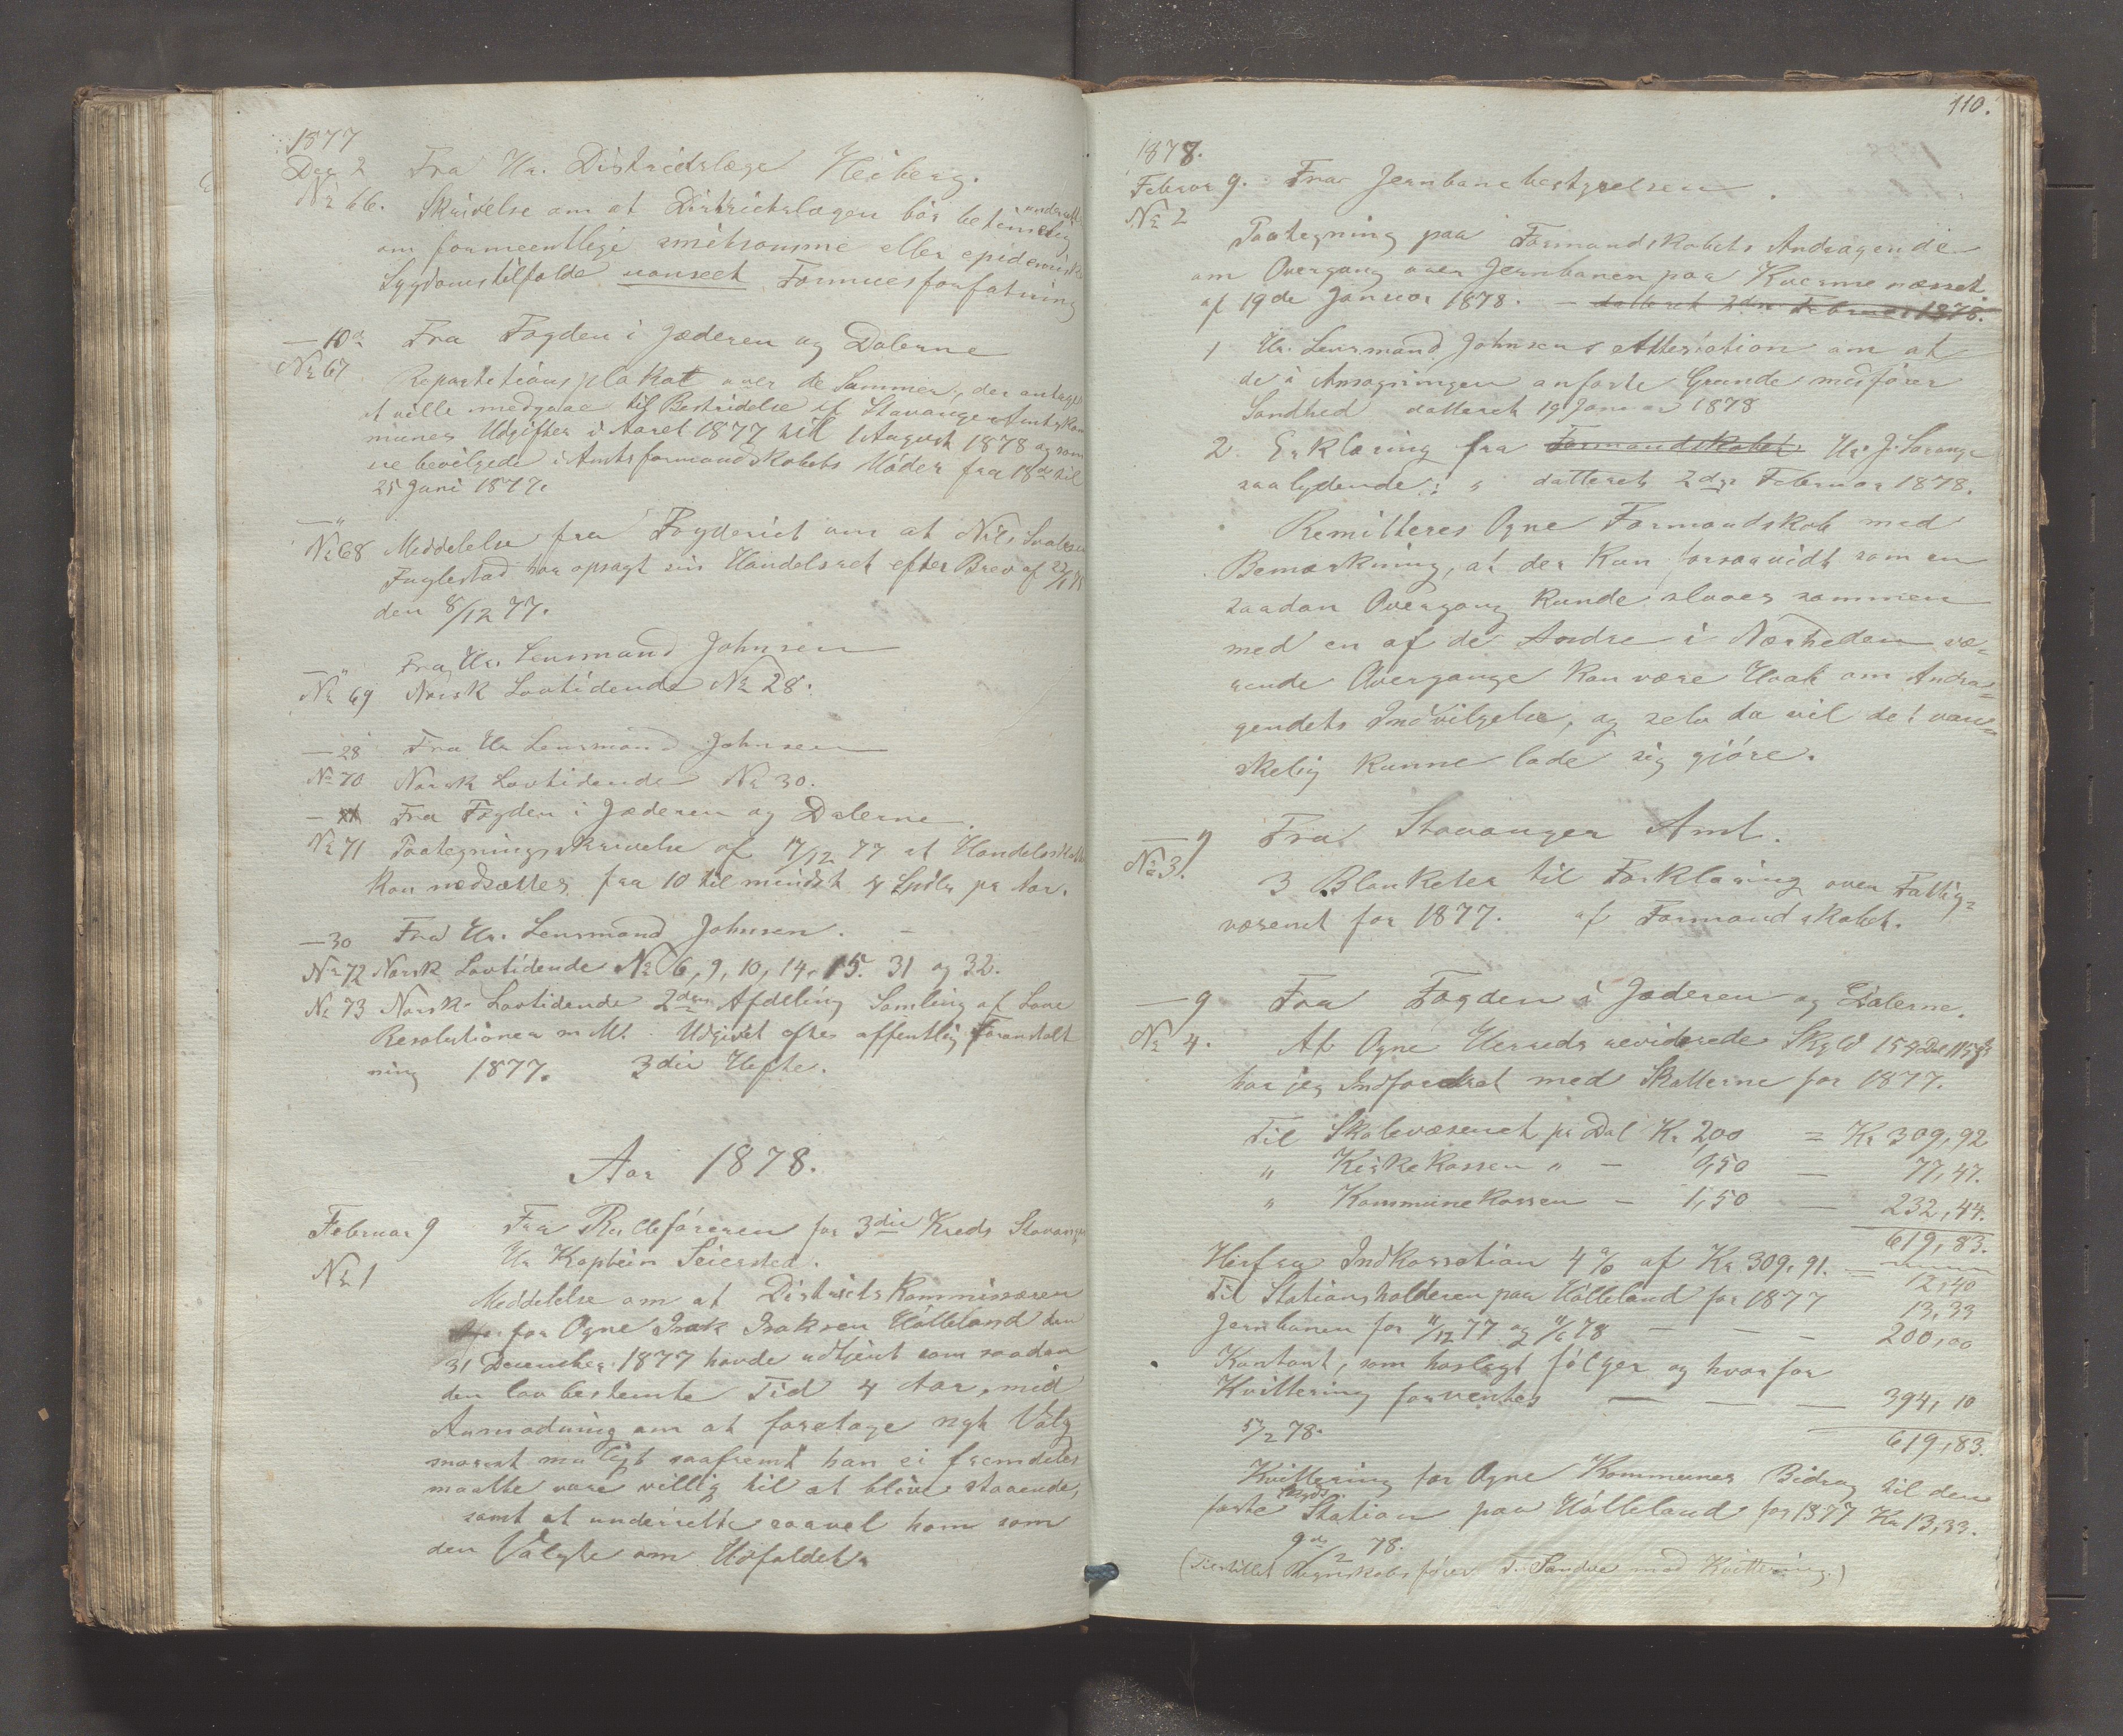 1877
Dec 2 Fra Hr. Districtslæge Heiberg.
No 66. Skrivelse om at Districtslægen bør betimelig underrettes
om formeentlige smitsomme eller epidemiske
Sygdomstilfælde uanseet Formuesforfatning
— 10de Fra Fogden i Jæderen og Dalerne
No 67 Repartitionsplakat over de Summer, der antages
at ville medgaae til Bestridelse af Stavanger Amtskom
muners Udgifter i Aaret 1877 til 1 August 1878 og som
ere bevilgede i Amtsformandskabets Møder fra 18de til
25 Juni 1877.
— "
No 68 Meddelelse fra Fogderiet om at Nils
Fuglestad har opsagt sin Handelsret efter Brev af
den 8/12 77.
Fra Hr. Lensmand Johnsen
— "
No 69 Norsk Lovtidende No 28.
— 28 Fra Hr Lensmand Johnsen
No 70 Norsk Lovtidende No 30.
— Fra Fogden i Jæderen og Dalerne
No 71 Paategningsskrivelse af 17/12 77 at Handelsskatten
kan nedsættes fra 10 til mindst 4 Spdlr pr Aar.
— 30 Fra Hr. Lensmand Johnsen. —
No 72 Norsk Lovtidende No 6, 9, 10, 14, 15. 31 og 32.
No 73 Norsk Lovtidende 2den Afdeling Samling af Love
Resolutioner m M. Udgivet efter offentlig Foranstalt
ning 1877. 3die Hefte.
Aar 1878.
Februar 9 Fra Rulleføreren for 3die Kreds Stavanger
Hr Kaptein Seiersted.
No 1 Meddelelse om at Districtskommissæren
for Ogne Isak Isaksen Hölleland den
31 December 1877 havde udtjent som saadan
den lov bestemte Tid 4 Aar, med
Anmodning om at foretage nyt Valg
snarest muligt saafremt han ei fremdeles
maatte være villig til at blive staaende,
samt at underrette saavel ham som
den Valgte om Udfaldet.
110.
1878.
Februar 9. Fra Jernbanebestyrelsen.
No 2
Paategning paa Formandskabets Andragende
om Overgang over Jernbanen paa Kvernenæsset
af 19de Januar 1878. — datteret 2den Februar 1878.
1 Hr. Lensmand Johnsens Attestation om at
de i Ansøgningen anførte Grunde medfører
Sandhed datteret 19 Januar 1878
2. Erklæring fra Formandskabet Hr. J.
saalydende: " datteret 2den Februar 1878.
Remitteres Ogne Formandskab med
Bemærkning, at der kun forsaavidt som en
saadan Overgang kunde slaaes sammen
med en af de Andre i Nærheden væ-
rende Overgange kan være Haab om Andra=
gendets Indvilgelse, og selv da vil det van=
skelig kunne lade sig gjøre.
— 9 Fra Stavanger Amt.
No 3. 3 Blanketer til Forklaring over Fattig=
væsenet for 1877. af Formandskabet.
— 9 Fra Fogden i Jæderen og Dalerne.
No 4. Af Ogne Herreds reviderede Skyld 154 Dal
har jeg Indfordret med Skatterne for 1877.
Til Skolevæsenet pr Dal Kr 2,00 = Kr 309,92
" Kirkekassen " — 0,50 — 77,47.
" Kommunekassen — 1,50 — 232,44.
619,83.
Herfra Indkassation 4 % af Kr. 309,91. = 12,40
Til Stationsholderen paa Hölleland for 1877 13,33
Jernbanen for 11/12 77 og 11/6 78 — — — 200,00
Kontant, som hoslagt følger og hvorfor
Kvittering forventes — — — 394,10
5/2 78. 619,83.
Kvittering for Ogne Kommunes Bidrag til den
faste Skyds Station paa Hölleland for 1877 Kr 13,33.
9de/2 78.
(Tilstillet Regnskabsfører T. Sandve mod Kvittering.)